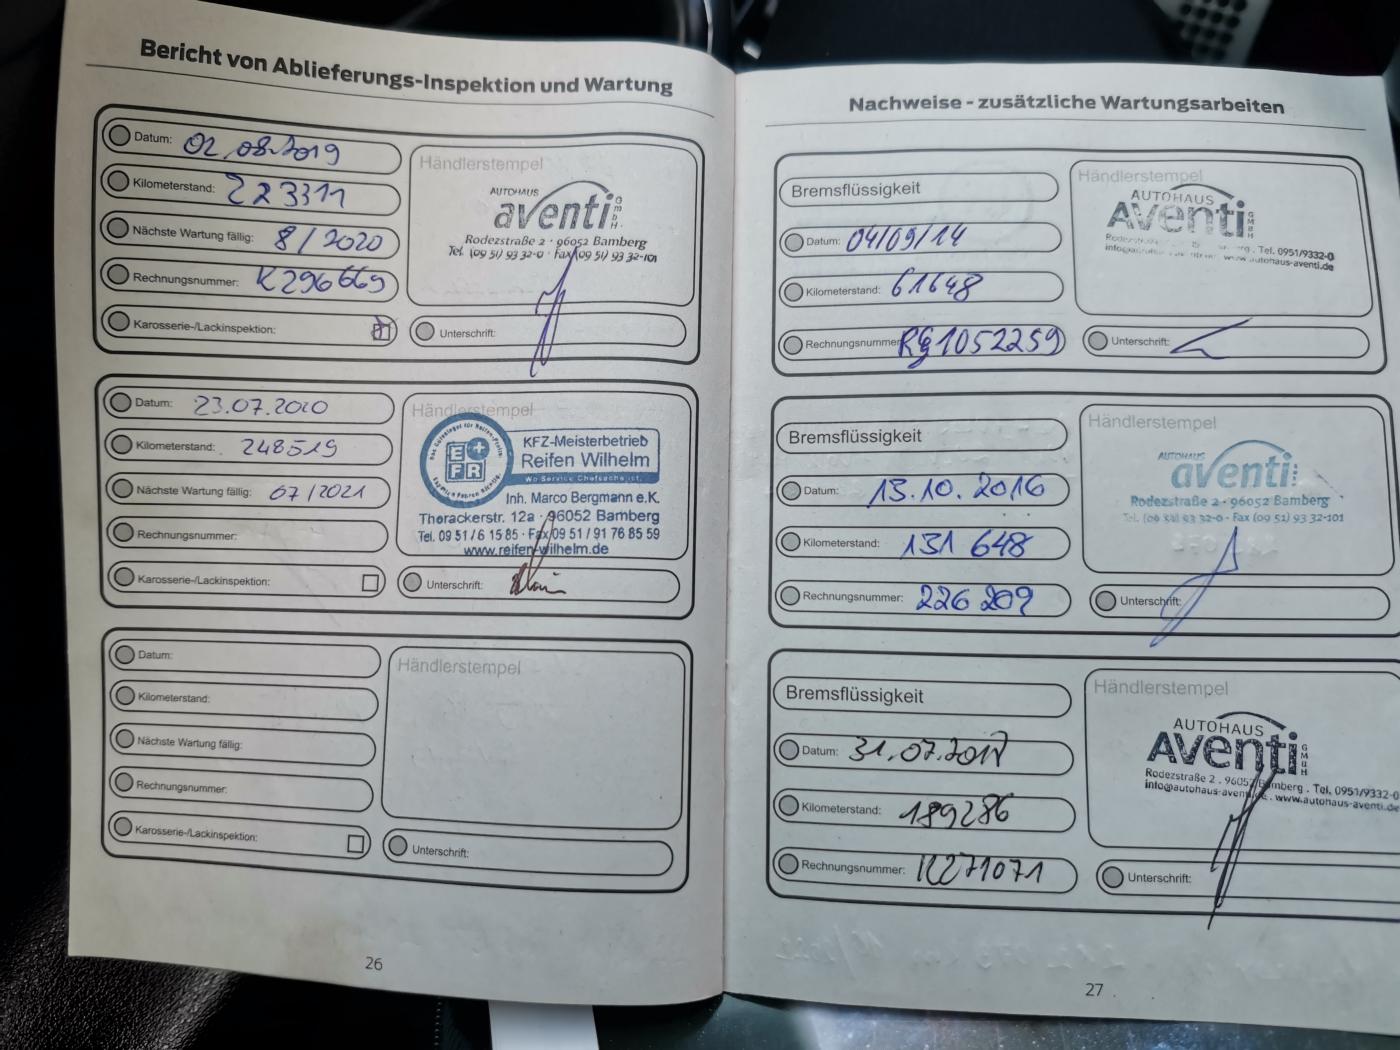 Bericht von Ablieferungs-Inspektion und Wartung
Datum: 02.08.2019
Kilometerstand: 223311
Nächste Wartung fällig: 8/2020
Rechnungsnummer: K296669
Karosserie-/Lackinspektion:
Händlerstempel
AUTOHAUS
aventi GmbH
Rodezstraße 2 · 96052 Bamberg
Tel. (09 51) 93 32-0 · Fax (09 51) 93 32-101
Unterschrift:
Datum: 23.07.2020
Kilometerstand: 248519
Nächste Wartung fällig: 07/2021
Rechnungsnummer:
Karosserie-/Lackinspektion:
Händlerstempel
EFR+
KFZ-Meisterbetrieb
Reifen Wilhelm
Wo Service Chefsache ist.
Inh. Marco Bergmann e.K.
Thorackerstr. 12a · 96052 Bamberg
Tel. 09 51/6 15 85 · Fax 09 51/91 76 85 59
www.reifen-wilhelm.de
Unterschrift:
Datum:
Kilometerstand:
Nächste Wartung fällig:
Rechnungsnummer:
Karosserie-/Lackinspektion:
Händlerstempel
Unterschrift:
26
Nachweise - zusätzliche Wartungsarbeiten
Bremsflüssigkeit
Datum: 04/09/14
Kilometerstand: 61648
Rechnungsnummer: RG1052259
Händlerstempel
AUTOHAUS
AVenti GmbH
Tel. 0951/9332-0
www.autohaus-aventi.de
Unterschrift:
Bremsflüssigkeit
Datum: 13.10.2016
Kilometerstand: 131 648
Rechnungsnummer: 226 209
Händlerstempel
AUTOHAUS
aventi
Rodezstraße 2 · 96052 Bamberg
Tel. (09 51) 93 32-0 · Fax (09 51) 93 32-101
Unterschrift:
Bremsflüssigkeit
Datum: 31.07.2018
Kilometerstand: 189286
Rechnungsnummer: K271071
Händlerstempel
AUTOHAUS
AVenti GmbH
Rodezstraße 2 . 96052 Bamberg . Tel. 0951/9332-0
info@autohaus-aventi.de . www.autohaus-aventi.de
Unterschrift:
27